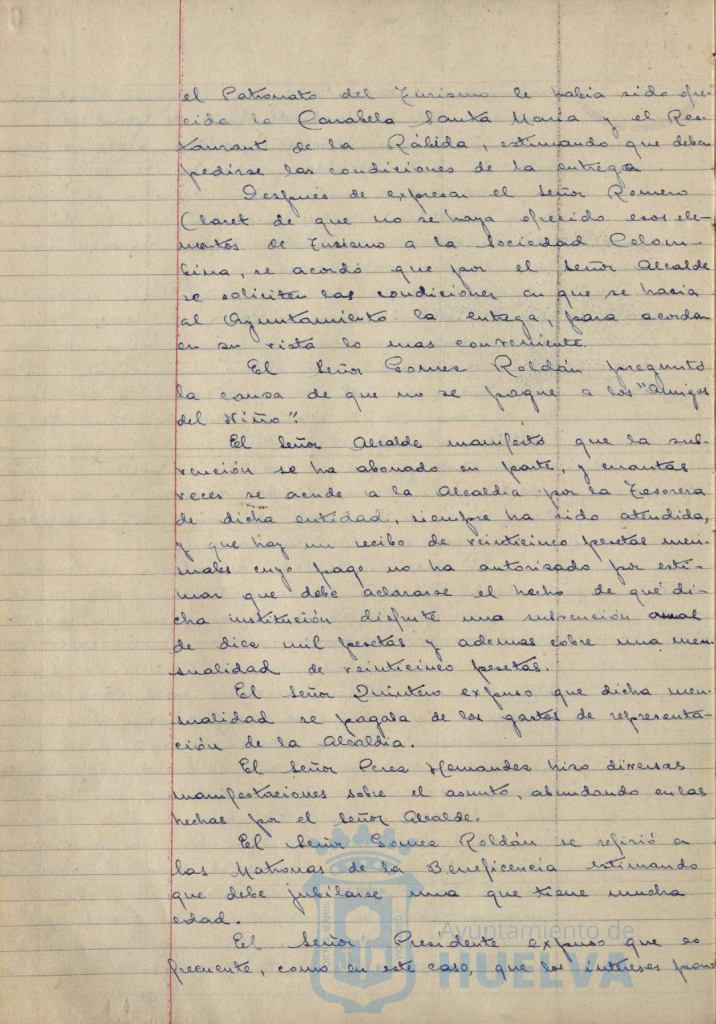 el Patronato del Turismo le habia sido ofre-
cida la Carabela Santa Maria y el Res-
taurant de la Rábida, estimando que deben
pedirse las condiciones de la entrega
Después de expresar el Señor Romero
Claret de que no se haya ofrecido esos ele-
mentos de Turismo a la Sociedad Colom-
bina, se acordó que por el Señor Alcalde
se soliciten las condiciones en que se hacia
al Ayuntamiento la entrega, para acordar
en su vista lo mas conveniente.
El Señor Gomez Roldán preguntó
la causa de que no se pague a los "Amigos
del Niño".
El Señor Alcalde manifestó que la sub-
vención se ha abonado en parte, y cuantas
veces se acude a la Alcaldia por la Tesorera
de dicha entidad, siempre ha sido atendida,
y que hay un recibo de veinticinco pesetas men-
suales cuyo pago no ha autorizado por esti-
mar que debe aclararse el hecho de que di-
cha institución disfrute una subvención anual
de diez mil pesetas y ademas cobre una men-
sualidad de veinticinco pesetas.
El Señor Quintero expuso que dicha men-
sualidad se pagaba de los gastos de representa-
ción de la Alcaldia.
El Señor Perez Hernandez hizo diversas
manifestaciones sobre el asunto, abundando en las
hechas por el Señor Alcalde.
El Señor Gomez Roldán se refirió a
las Matronas de la Beneficencia estimando
que debe jubilarse una que tiene mucha
edad.
El Señor Presidente expuso que es
frecuente, como en este caso, que los intereses
Ayuntamiento de
HUELVA